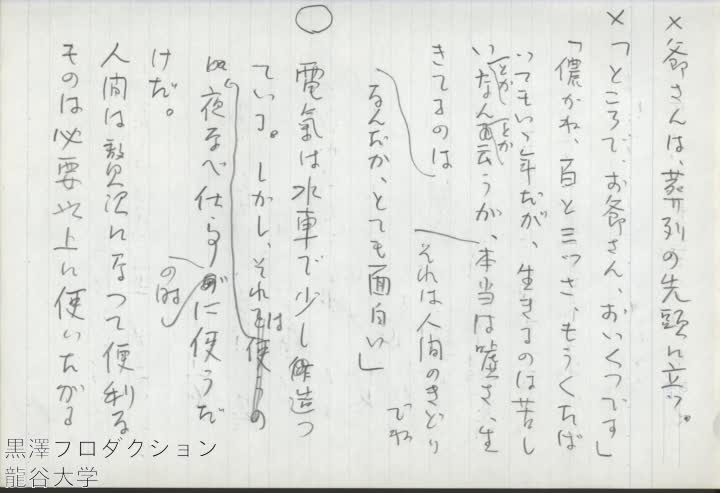 ×爺さんは、葬列の先頭に立つ。
×「ところで、お爺さん、おいくつです」
「儂かね、百と三つさ、もうくたば
つてもいゝ年だが、生きるのは苦し
いとかなんとか云うが、本当は嘘さ、生
きてるのは
それは人間のきどり
でね
なんだか、とても面白い」
○
電氣は水車で少し造つ
ている。しかし、それは
夜なべ仕事の時に使うだ
けだ。
人間は贅沢になつて便利な
ものは必要以上に使いたがる
黒澤プロダクション
龍谷大学